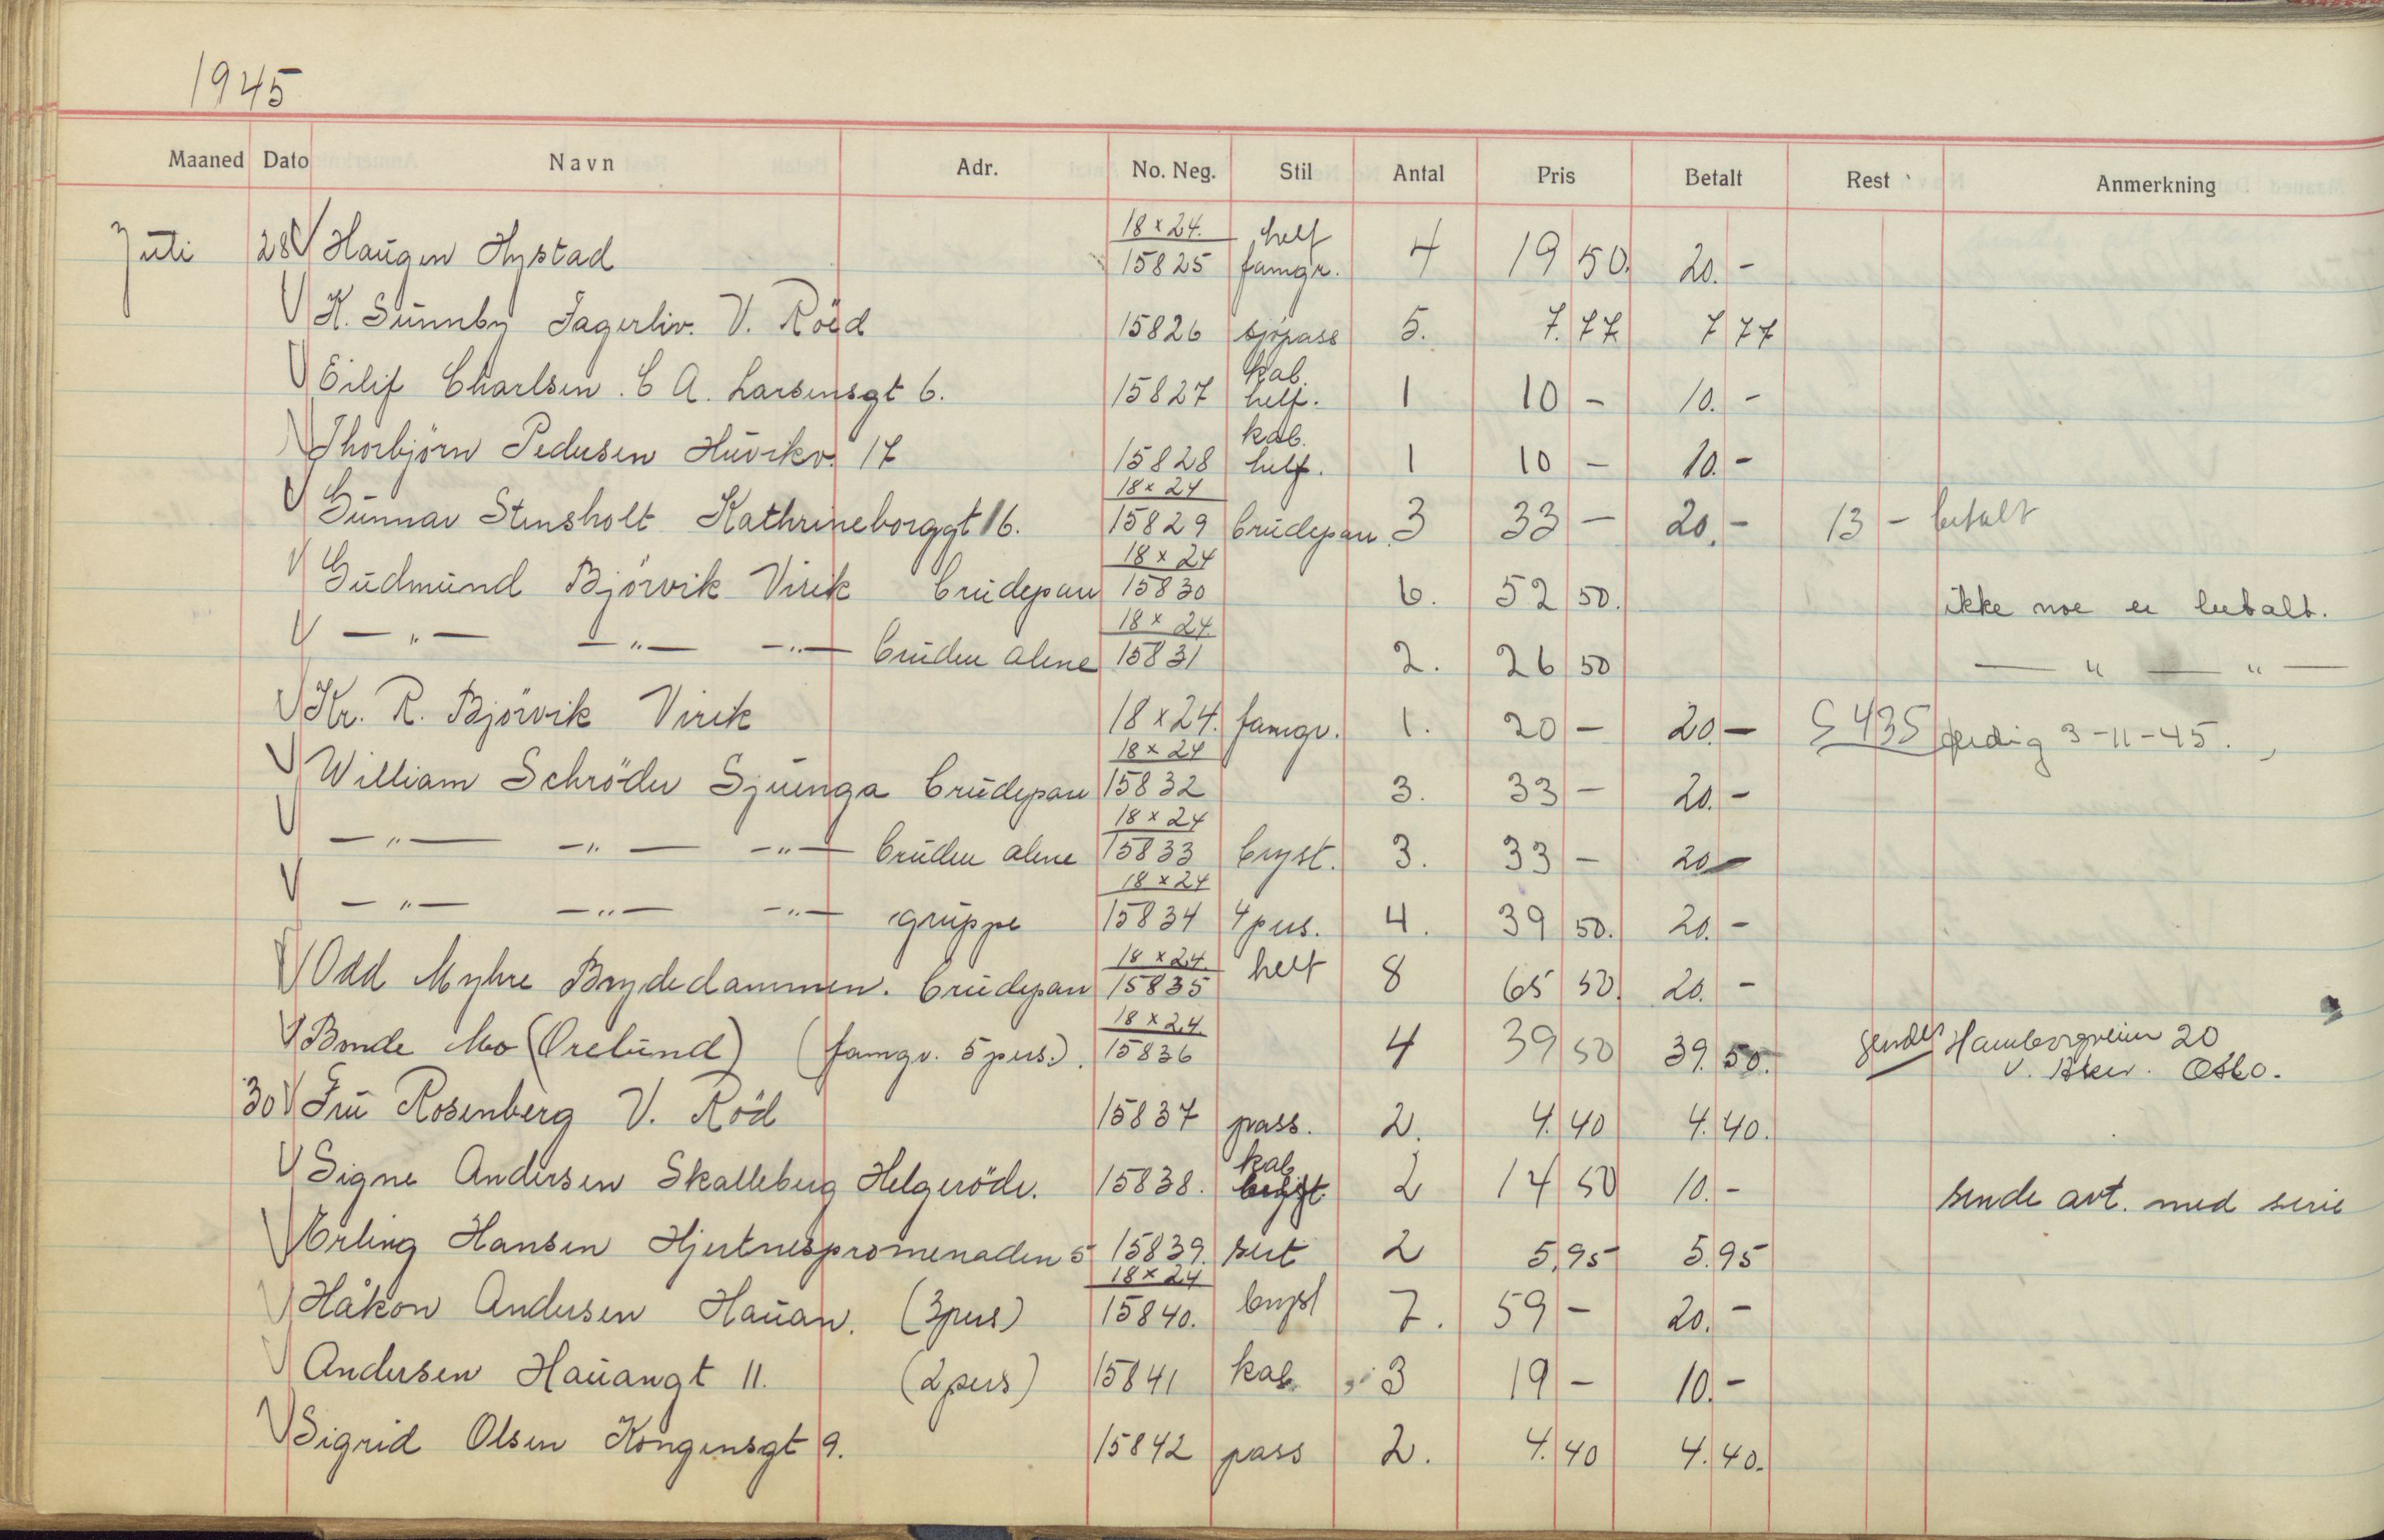 1945
Maaned Dato Navn Adr. No. Neg. Stil Antal Pris Betalt Rest Anmerkning
Juli 28 Haugen Hystad 18 x 24. 15825 helf famgr. 4 19 50. 20. -
K. Sunnby Fagerliv. V. Röd 15826 sjöpass 5. 7.77 7 77
Eilif Charlsen. C A. Larsensgt 6. 15827 kab. helf. 1 10 - 10. -
Thorbjörn Pedersen Huvikv. 17 15828 kab. helf. 1 10 - 10. -
Gunnar Stensholt Kathrineborggt 16. 18 x 24 15829 brudepar. 3 33 - 20. - 13 - betalt
Gudmund Bjørvik Virik brudepar 18 x 24 15830 6. 52 50. ikke noe er betalt.
- " - - " - - " - bruden alene 18 x 24. 15831 2. 26 50 - " - " -
Kr. R. Bjørvik Virik 18 x 24. famgr. 1. 20 - 20. - S 435 ferdig 3-11-45.
William Schröder Sjuenga brudepar 18 x 24 15832 3. 33 - 20. -
- " - - " - - " - bruden alene 18 x 24 15833 bryst. 3. 33 - 20 -
- " - - " - - " - gruppe 18 x 24 15834 4 pers. 4. 39 50. 20. -
Odd Myhre Brydedammen. brudepar 18 x 24. 15835 helf 8 65 50. 20. -
Bonde Mo (Orelund) (famgr. 5 pers.). 18 x 24 15836 4 39 50 39. 50. sendes Hamborgveien 20
V. Aker. Oslo.
30 Fru Rosenberg V. Röd 15837 pass. 2. 4. 40 4. 40.
Signe Andersen Skalleberg Helgeröde. 15838. kab bryst. 2 14 50 10. - sende avt. med serie
Erling Hansen Hjertnespromenaden 5 15839. sert 2 5,95 5.95
Håkon Andersen Hauan. (3 pers) 18 x 24 15840. bryst 7. 59 - 20. -
Andersen Hauangt 11. (2 pers) 15841 kab. 3 19 - 10. -
Sigrid Olsen Kongensgt 9. 15842 pass 2. 4. 40 4. 40.